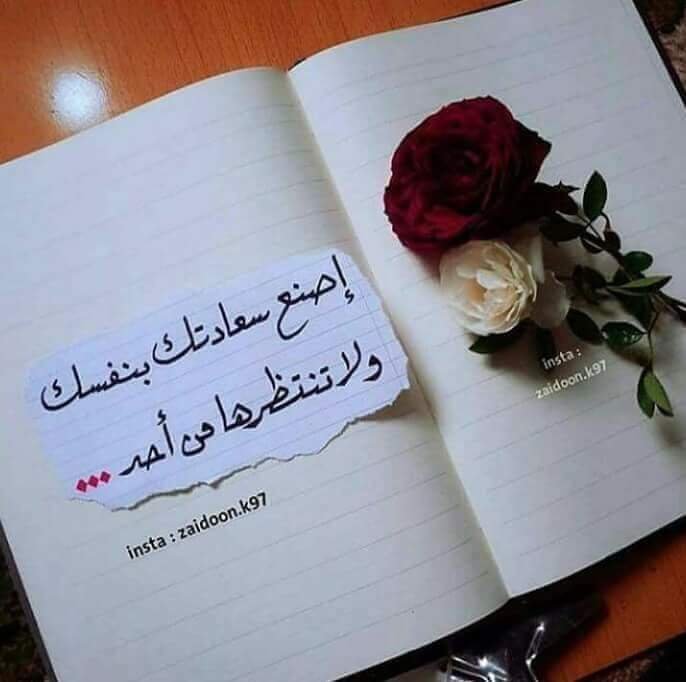 إصنع سعادتك بنفسك
ولا تنتظرها من أحد
insta : zaidoon.k97
insta :
zaidoon.k97